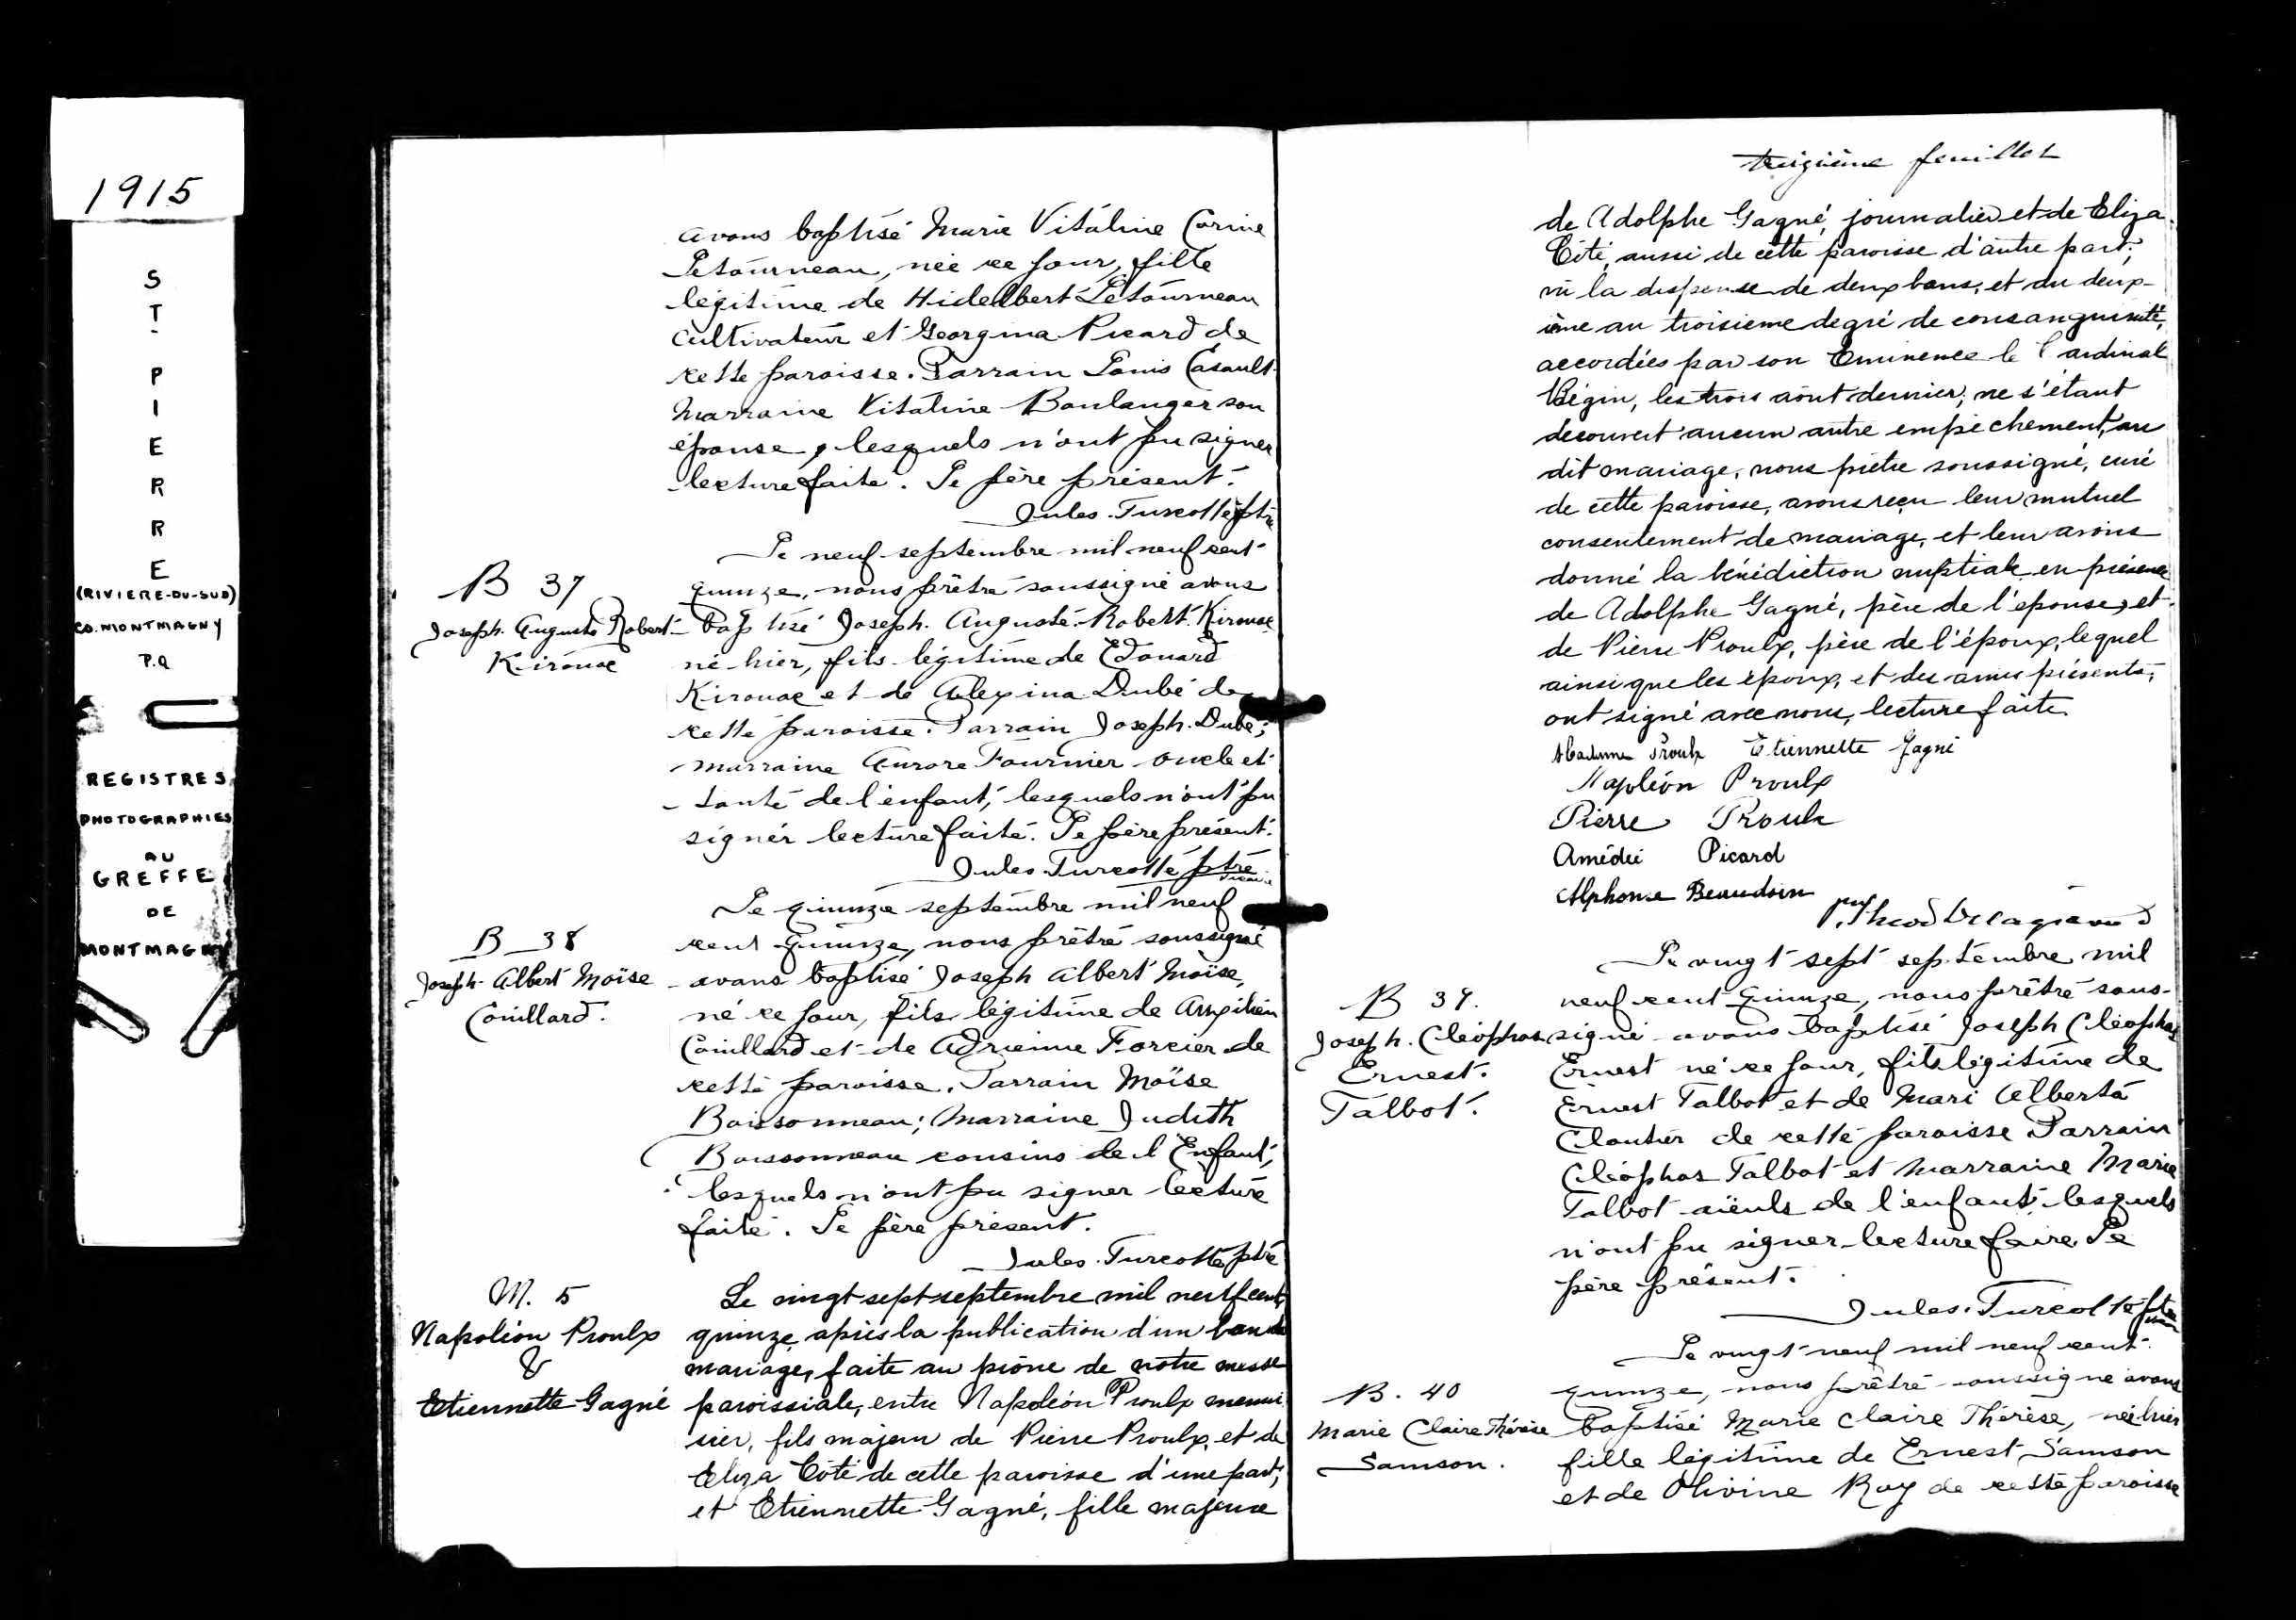 1915
ST-PIERRE
(RIVIERE-DU-SUD)
CO. MONTMAGNY
P.Q
REGISTRES
PHOTOGRAPHIES
AU
GREFFE
DE
MONTMAGNY
avons baptisé Marie Vitaline Corine
Letourneau, née ce jour, fille
légitime de Hidelbert Letourneau
cultivateur et Georgina Picard de
cette paroisse. Parrain Louis Casault
Marraine Vitaline Boulanger son
épouse, lesquels n'ont pu signer
lecture faite. Le père présent.
Jules Turcotte ptre
B 37
Joseph. Auguste Robert
Kirouac
Le neuf septembre mil neuf cent
quinze, nous prêtre soussigné avons
baptisé Joseph. Auguste. Robert. Kirouac
né hier, fils légitime de Edouard
Kirouac et de Alexina Dubé de
cette paroisse. Parrain Joseph. Dubé;
marraine Aurore Fournier oncle et
tante de l'enfant, lesquels n'ont pu
signer lecture faite. Le père présent.
Jules Turcotte ptre
vicaire
B 38
Joseph. Albert Moïse
Couillard.
Le quinze septembre mil neuf
cent quinze, nous prêtre soussigné
avons baptisé Joseph Albert Moïse,
né ce jour, fils légitime de
Couillard et de Adrienne Forcier de
cette paroisse. Parrain Moïse
Boissonneau; Marraine Judith
Boissonneau cousins de l'Enfant,
lesquels n'ont pu signer lecture
faite. Le père présent.
Jules Turcotte ptre
M. 5
Napoléon Proulx
&
Etiennette Gagné
Le vingt sept septembre mil neuf cent
quinze, après la publication d'un ban de
mariage, faite au prône de notre messe
paroissiale, entre Napoléon Proulx menui
sier, fils majeur de Pierre Proulx, et de
Eliza Côté de cette paroisse d'une part;
et Etiennette Gagné, fille majeure
treizième feuillet
de Adolphe Gagné, journalier et de Eliza
Côté, aussi de cette paroisse d'autre part;
vu la dispense de deux bans, et du deux-
ième au troisieme degré de consanguinité,
accordées par son Eminence le Cardinal
Bégin, les trois août dernier; ne s'étant
decouvert aucun autre empêchement, au
dit mariage, nous prêtre soussigné, curé
de cette paroisse, avons reçu leur mutuel
consentement de mariage, et leur avons
donné la bénédiction nuptiale en présence
de Adolphe Gagné, père de l'epouse, et
de Pierre Proulx, père de l'époux, lequel
ainsi que les époux, et des amis présents,
ont signé avec nous, lecture faite
Madame Proulx Etiennette Gagné
Napoléon Proulx
Pierre Proulx
Amédée Picard
Alphonse Beaudoin
B 39.
Joseph. Cléophas
Ernest.
Talbot.
Le vingt sept septembre mil
neuf cent quinze, nous prêtre sous-
signé avons baptisé Joseph Cléophas
Ernest né ce jour, fils légitime de
Ernest Talbot et de Mari Alberta
Cloutier de cette paroisse Parrain
Cléophas Talbot et marraine Marie
Talbot aïeuls de l'enfant, lesquels
n'ont pu signer lecture faire. Le
père présent.
Jules. Turcotte ptre
B. 40
Marie Claire Thérèse
Samson.
Le vingt neuf mil neuf cent
quinze, nous prêtré soussigné avons
baptisé Marie Claire Thérèse, née hier
fille légitime de Ernest Samson
et de Olivine Roy de cette paroisse